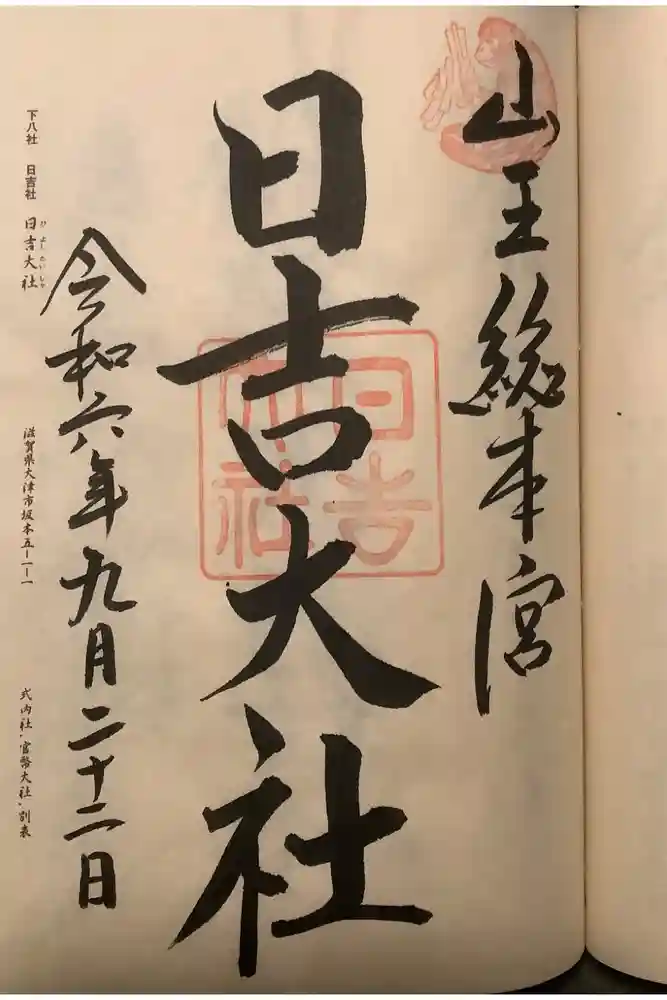 山王総本宮
日吉大社
日吉大社
令和六年九月二十二日
下八社 日吉社 日吉大社 滋賀県大津市坂本五-一-一 式内社・官幣大社・別表
ひよしたいしゃ